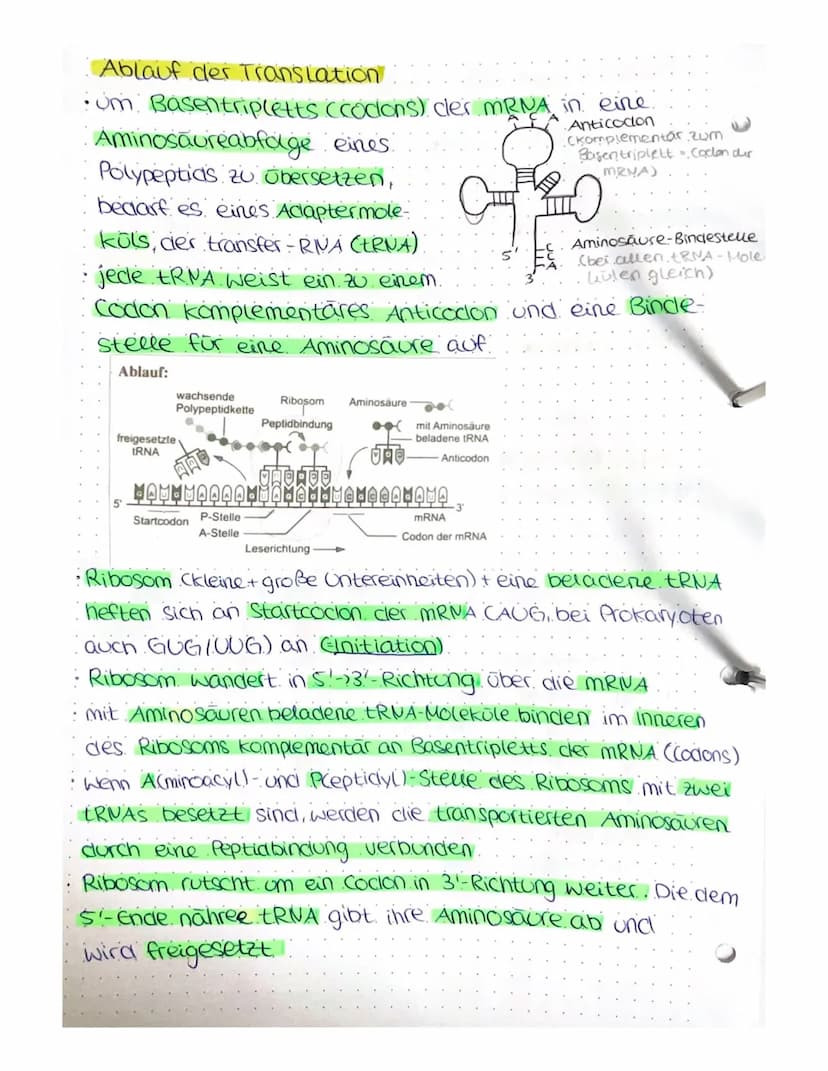 Ablauf der Translation
• um Basentripletts (Codons) der mRNA in eine
Aminosäureabfolge eines
Polypeptids zu übersetzen,
bedarf es eines Adaptermole-
küls, der transfer-RNA (tRNA)
• jede tRNA weist ein zu einem
Codon komplementäres Anticodon und eine Binde-
stelle für eine Aminosäure auf
A C A
Anticodon
(komplementär zum
Basentriplett = Codon der
mRNA)
5'
3'
C
C
A
Aminosäure-Bindestelle
(bei allen tRNA-Mole
külen gleich)
Ablauf:
wachsende
Polypeptidkette
Ribosom
Aminosäure
Peptidbindung
mit Aminosäure
beladene tRNA
freigesetzte
tRNA
Anticodon
5'
3'
Startcodon
P-Stelle
mRNA
A-Stelle
Codon der mRNA
Leserichtung
• Ribosom (kleine + große Untereinheiten) + eine beladene tRNA
heften sich an Startcodon der mRNA (AUG, bei Prokaryoten
auch GUG/UUG) an (=Initiation)
• Ribosom wandert in 5'->3'-Richtung über die mRNA
• mit Aminosäuren beladene tRNA-Moleküle binden im Inneren
des Ribosoms komplementär an Basentripletts der mRNA (Codons)
• wenn A(minoacyl)- und P(eptidyl)-Stelle des Ribosoms mit zwei
tRNAs besetzt sind, werden die transportierten Aminosäuren
durch eine Peptidbindung verbunden
• Ribosom rutscht um ein Codon in 3'-Richtung weiter. Die dem
5'-Ende nähree tRNA gibt ihre Aminosäure ab und
wird freigesetzt